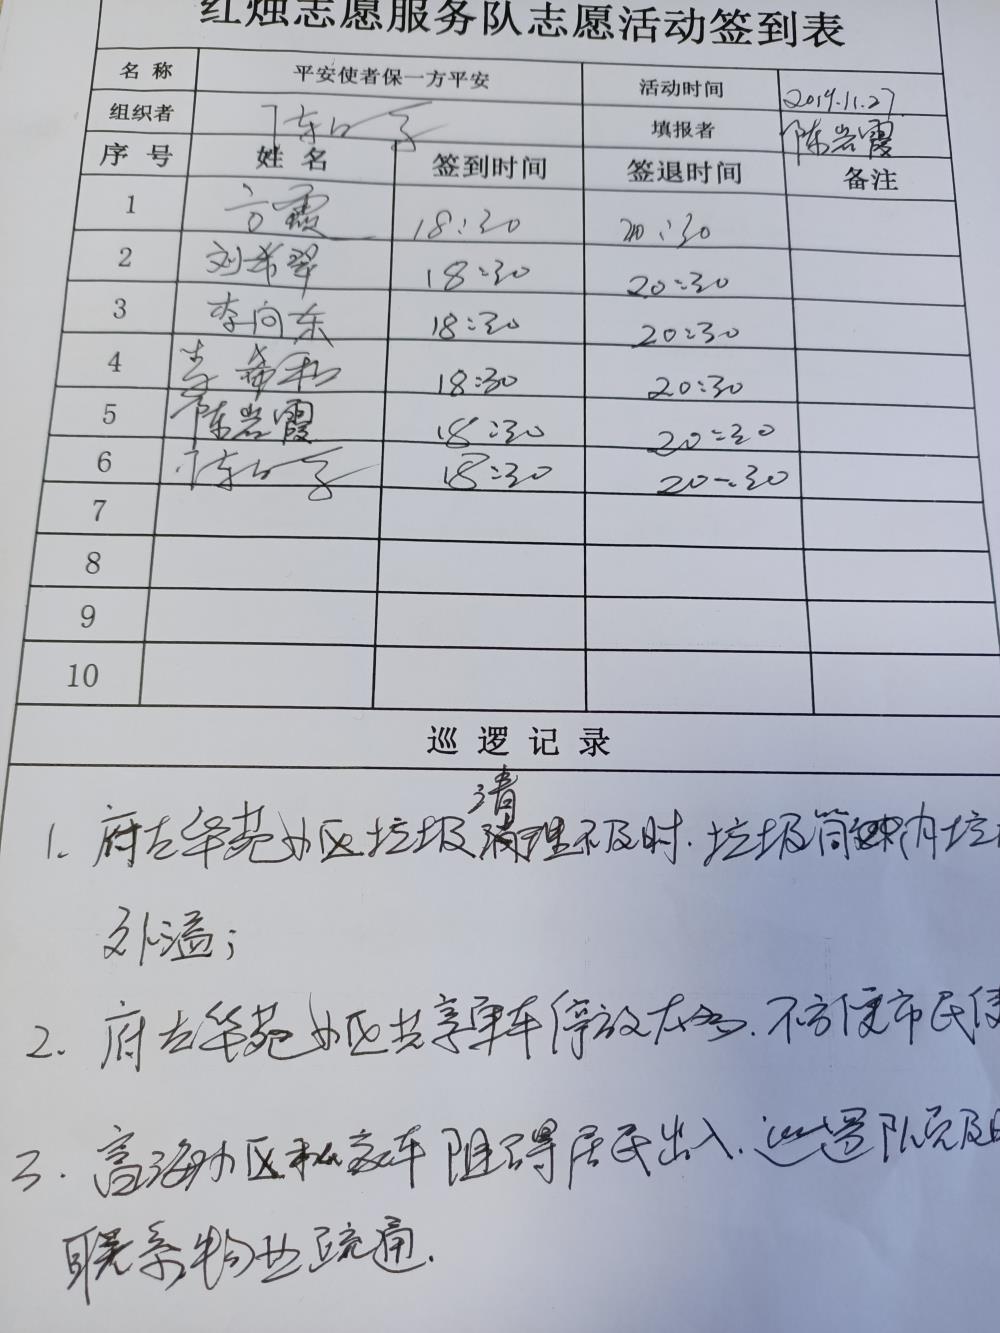 红烛志愿服务队志愿活动签到表
名称 平安使者保一方平安 活动时间 2019.11.27
组织者 填报者 陈岩霞
序号 姓名 签到时间 签退时间 备注
1 方霞 18:30 20:30
2 刘希翠 18:30 20:30
3 李向东 18:30 20:30
4 李希 18:30 20:30
5 陈岩霞 18:30 20:30
6 18:30 20:30
7
8
9
10
巡逻记录
清
1. 府左华苑小区垃圾清理不及时.垃圾筒内垃
外溢;
2. 府左华苑小区共享单车停放太多.不方便市民使
3. 高海小区私家车阻碍居民出入.巡逻队员及时
联系物业疏通.